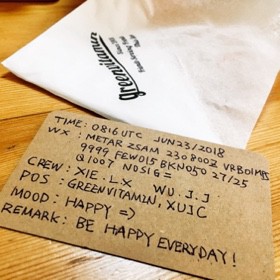 greenvitamin
TIME: 0816UTC JUN23/2018
WX: METAR ZSAM 230800Z VRB01MPS
9999 FEW015 BKN050 27/25
Q1007 NOSIG=
CREW: XIE. L.X WU. J. J
POS: GREENVITAMIN, XUJC
MOOD: HAPPY =)
REMARK: BE HAPPY EVERYDAY!